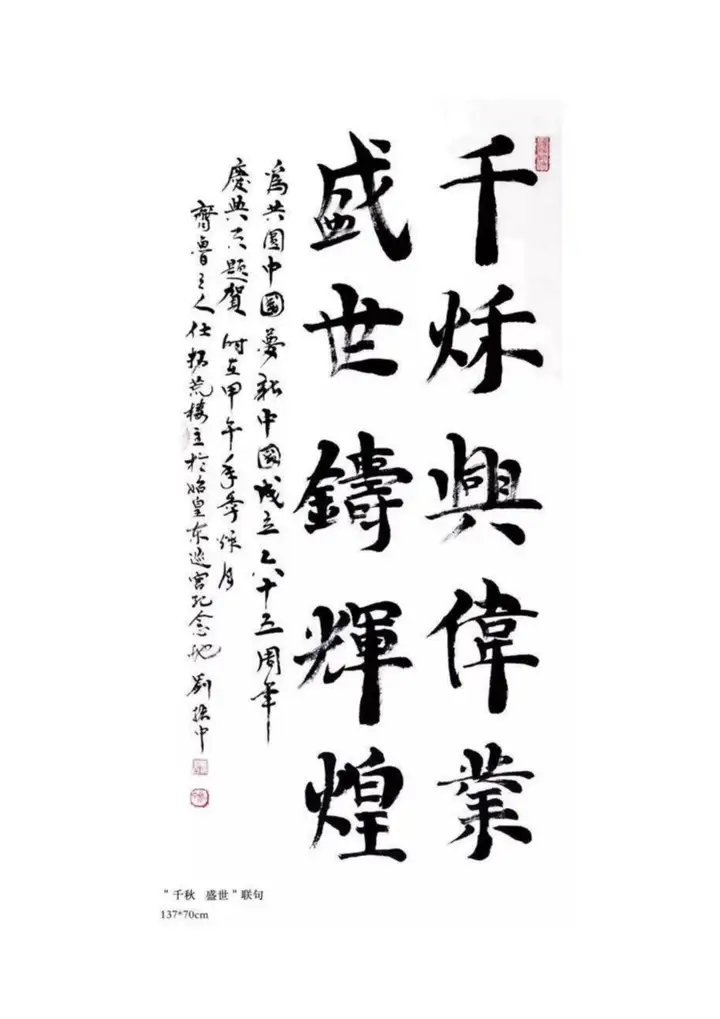 千秌興偉業
盛世鑄輝煌
爲共圆中國夢新中國成立六十五周年
慶典而題賀 时在甲午年季秌月
齊魯之人仕拓荒樓主於始皇东巡宫纪念地 劉振中
"千秋 盛世"联句
137*70cm